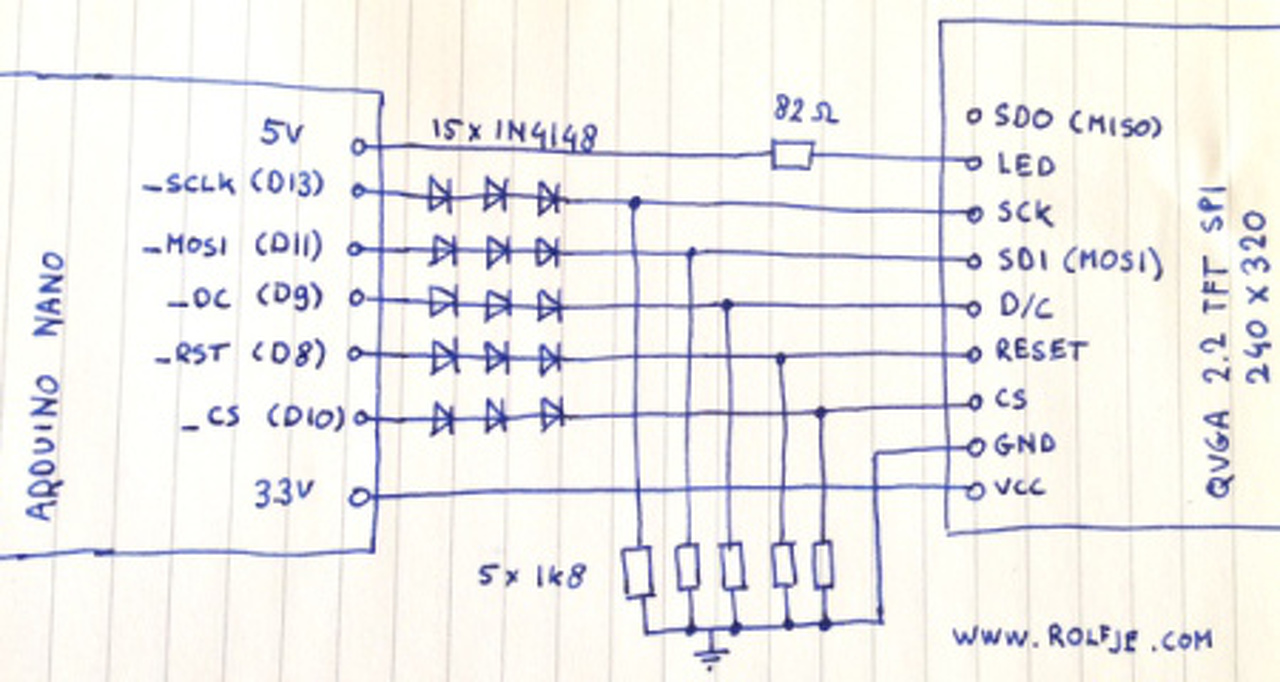 5V
_SCLK (D13)
_MOSI (D11)
_DC (D9)
_RST (D8)
_CS (D10)
33V
ARDUINO NANO
15x 1N4148
82 Ω
5x 1k8
SDO (MISO)
LED
SCK
SDI (MOSI)
D/C
RESET
CS
GND
VCC
QVGA 2.2 TFT SPI
240 x 320
WWW.ROLFJE.COM